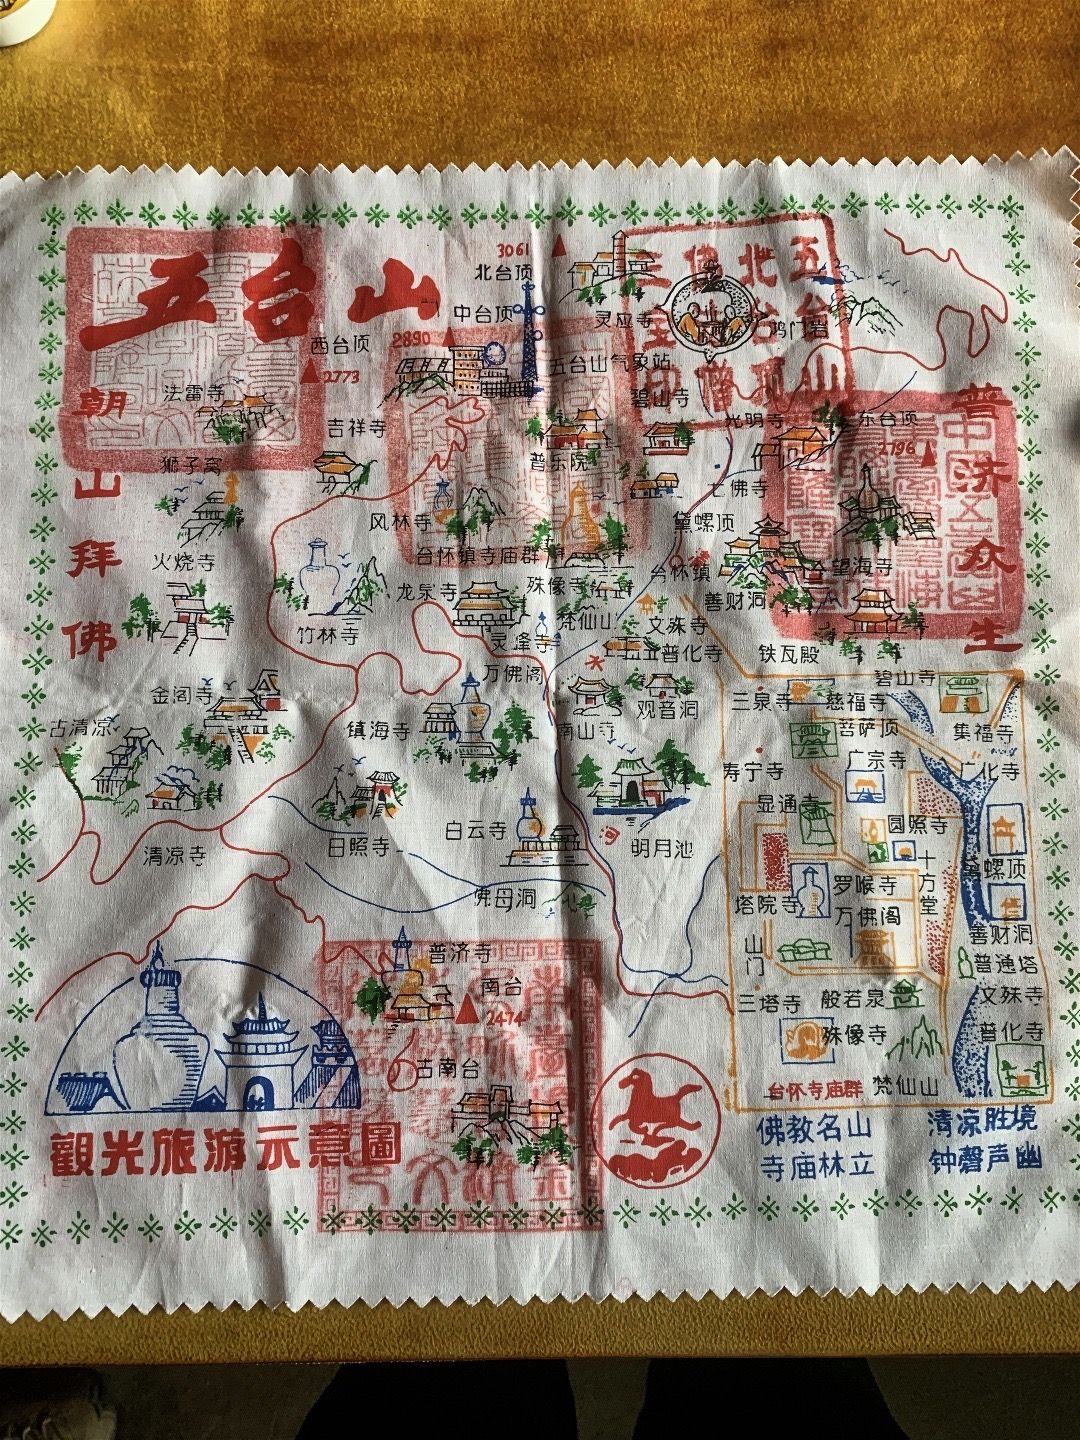 五台山
朝山拜佛
普济众生
3061
北台顶
中台顶
2890
西台顶
2773
灵应寺
鸡门岩
五台山气象站
五台山
北台顶
佛僧
三宝印
法雷寺
吉祥寺
碧山寺
光明寺
东台顶
2796
狮子窝
普乐院
七佛寺
风林寺
黛螺顶
火烧寺
台怀镇寺庙群
台怀镇
望海寺
龙泉寺
殊像寺
善财洞
竹林寺
灵峰寺
梵仙山
文殊寺
普化寺
铁瓦殿
万佛阁
金阁寺
观音洞
古清凉
镇海寺
南山寺
清凉寺
日照寺
白云寺
河
明月池
佛母洞
普济寺
南台
2474
古南台
碧山寺
三泉寺
慈福寺
菩萨顶
集福寺
寿宁寺
广宗寺
广化寺
显通寺
圆照寺
十方堂
黛螺顶
塔院寺
罗睺寺
万佛阁
善财洞
山门
普通塔
三塔寺
般若泉
文殊寺
殊像寺
普化寺
台怀寺庙群
梵仙山
觀光旅游示意圖
佛教名山
清凉胜境
寺庙林立
钟磬声幽